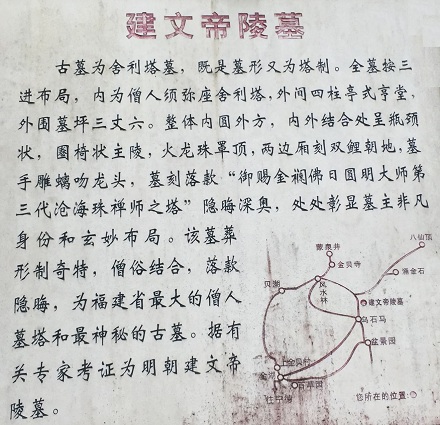 建文帝陵墓
古墓为舍利塔墓，既是墓形又为塔制。全墓按三
进布局，内为僧人须弥座舍利塔，外间四柱亭式亨堂，
外围墓坪三丈六。整体内圆外方，内外结合处呈瓶颈
状，圈椅状主陵，火龙珠罩顶，两边厢刻双鲤朝地，墓
手雕螭吻龙头，墓刻落款“御赐金襕佛日圆明大师第
三代沧海珠禅师之塔”隐晦深奥，处处彰显墓主非凡
身份和玄妙布局。该墓葬
形制奇特，僧俗结合，落款
隐晦，为福建省最大的僧人
墓塔和最神秘的古墓。据有
关专家考证为明朝建文帝
陵墓。
八仙顶
蒙泉井
金贝寺
渔金石
贝湖
风水林
建文帝陵墓
乌石马
盆景园
上金贝村
金河
百草园
您所在的位置: